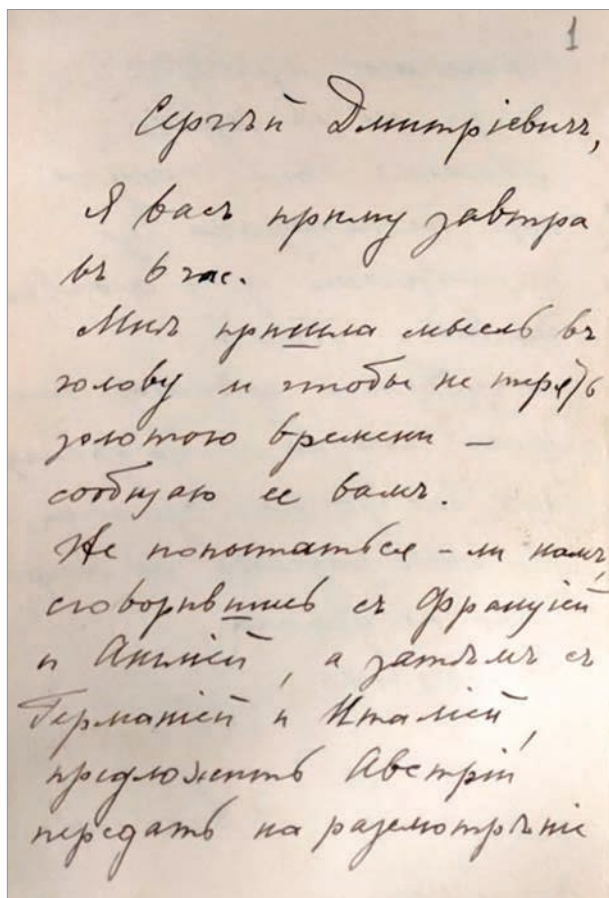 1
Сергѣй Дмитріевичъ,
Я васъ приму завтра
въ 6 час.
Мнѣ пришла мысль въ
голову и чтобы не терять
золотого времени –
сообщаю ее вамъ.
Не попытаться – ли намъ,
сговорившись съ Франціей
и Англіей, а затѣмъ съ
Германіей и Италіей,
предложить Австріи
передать на разсмотрѣніе